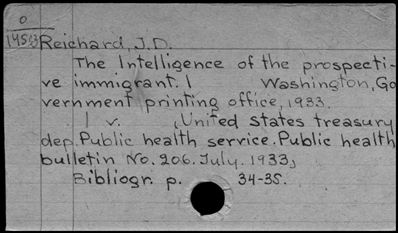 0
14503
Reichard, J.D.
The Intelligence of the prospecti-
ve immigrant. | Washington, Go
vernment printing office, 1933.
1 v. (United states treasury
dep. Public health service. Public health
bulletin No. 206. July. 1933)
Bibliogr. p. 34-35.